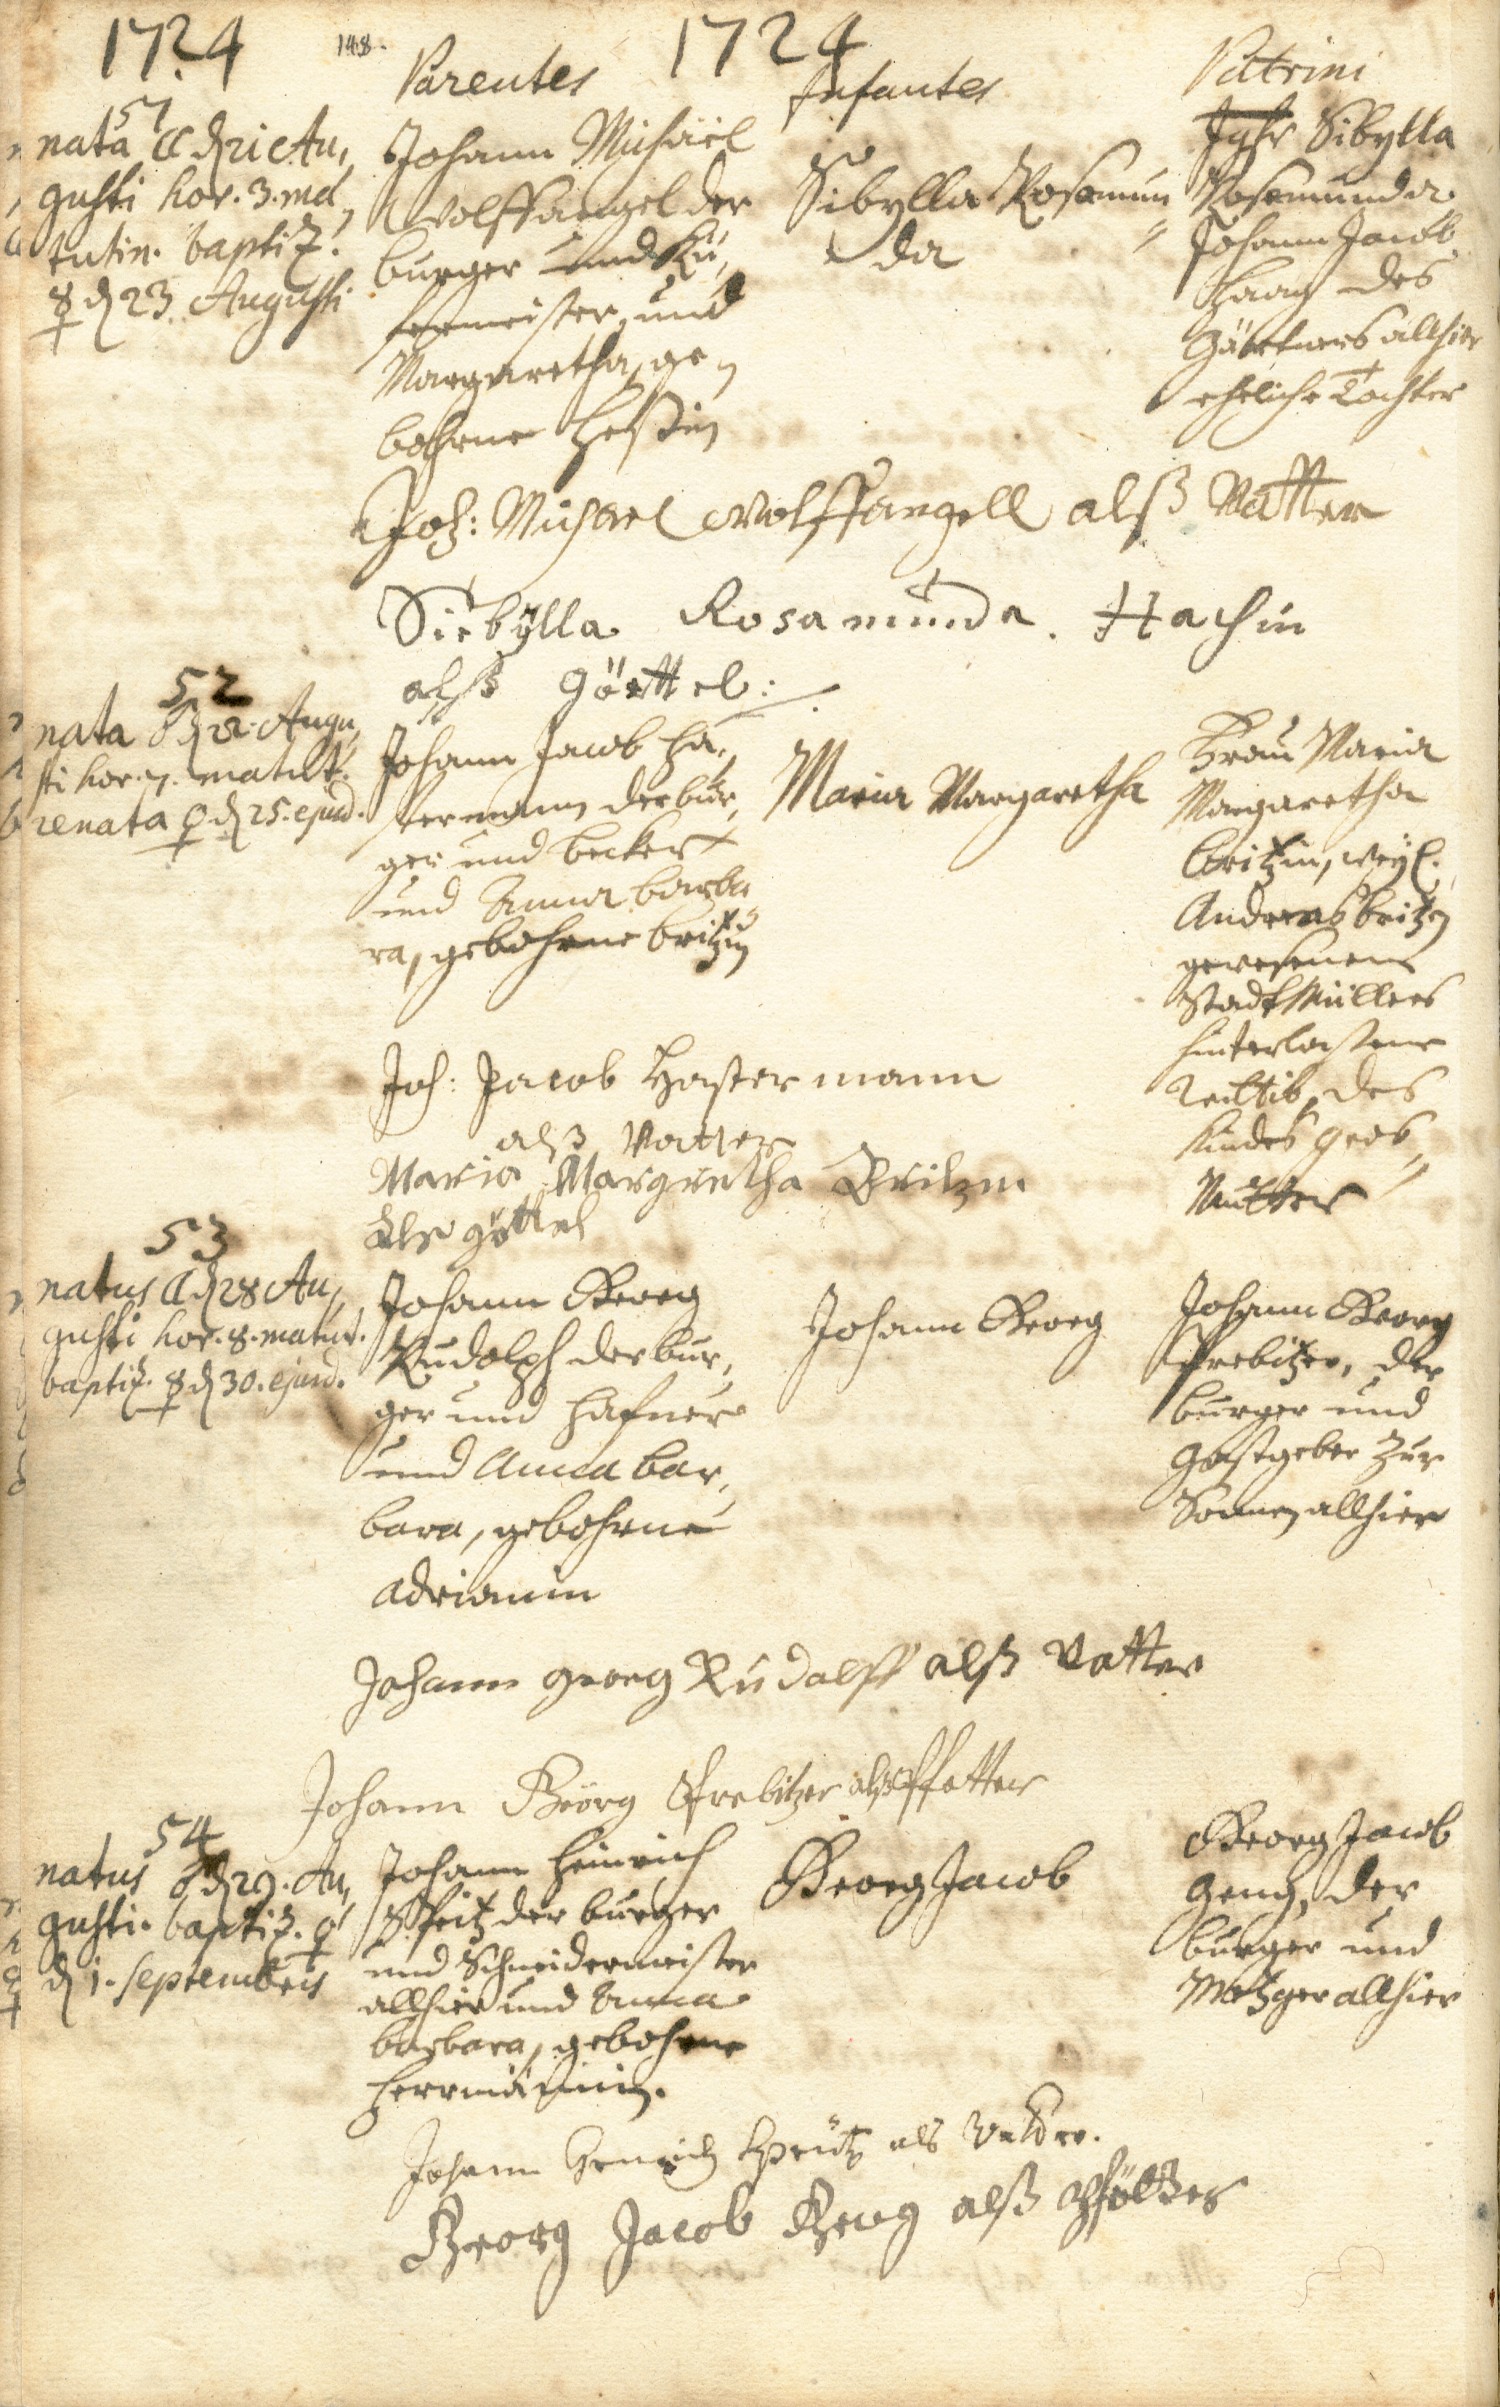 1724 148. 1724
Parentes Infantes Patrini
51
nata ☾ d 21 Au,
gusti hor. 3. ma,
tutin. baptiz.
☿ d 23. Augusti
Johann Michäel
Wolffangel der
burger und Kü,
fermeister, und
Margaretha, ge,
bohrne Heßin
Sibylla Rosamun
da
Jgfr Sibylla
Rosamunda
Johann Jacob
Haag des
Gärtners allhier
eheliche Tochter
Joh: Michael Wolffangell alß Vatter
Siebÿlla Rosamunda. Hachin
alß Göettel:
52
nata ♂ d 22. Augu,
sti hor. 7. matut.
renata ♀ d 25. ejusd.
Johann Jacob Ha,
stermann der bur,
ger und becker
und Anna barba
ra, gebohrne britzin
Maria Margaretha
Frau Maria
Margaretha
britzin, weyl.
Andreas britzen
gewesenen
Stadt Müllers
hinterlassene
des
Kindes Gros,
Mutter
Joh: Jacob Hastermann
alß Vatter
Maria Margretha Britzin
Als göttel
53
natus ☾ d 28 Au,
gusti hor. 8. matut.
baptiz. ☿ d 30. ejusd.
Johann Georg
Rudolph der bur,
ger und Hafner
und Anna bar,
bara, gebohrne
Adrianin
Johann Georg
Johann Georg
Strebitzer, der
burger und
Gastgeber zur
Sonnen allhier
Johann georg Rudalff alß Vatter
Johann Geörg Strebitzer alß pfetter
54
natus ♂ d 29. Au,
gusti. baptiz. ♀
d 1. Septembris
Johann Heinrich
Speitz der burger
und Schneidermeister
allhier und Anna
barbara, gebohrne
Herrmännin.
Georg Jacob
Georg Jacob
Geng, der
burger und
Metzger allhier
Johann Henrich Speütz als Vatter.
Georg Jacob Geng alß pfätter